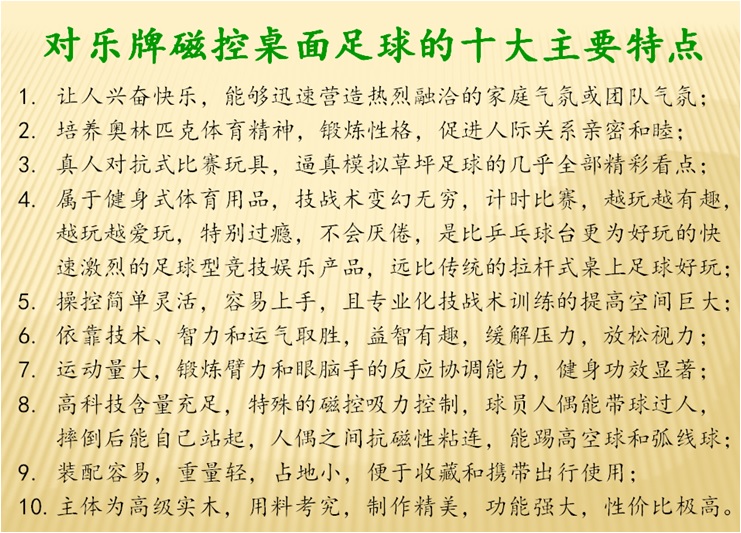 对乐牌磁控桌面足球的十大主要特点
1. 让人兴奋快乐，能够迅速营造热烈融洽的家庭气氛或团队气氛；
2. 培养奥林匹克体育精神，锻炼性格，促进人际关系亲密和睦；
3. 真人对抗式比赛玩具，逼真模拟草坪足球的几乎全部精彩看点；
4. 属于健身式体育用品，技战术变幻无穷，计时比赛，越玩越有趣，
越玩越爱玩，特别过瘾，不会厌倦，是比乒乓球台更为好玩的快
速激烈的足球型竞技娱乐产品，远比传统的拉杆式桌上足球好玩；
5. 操控简单灵活，容易上手，且专业化技战术训练的提高空间巨大；
6. 依靠技术、智力和运气取胜，益智有趣，缓解压力，放松视力；
7. 运动量大，锻炼臂力和眼脑手的反应协调能力，健身功效显著；
8. 高科技含量充足，特殊的磁控吸力控制，球员人偶能带球过人，
摔倒后能自己站起，人偶之间抗磁性粘连，能踢高空球和弧线球；
9. 装配容易，重量轻，占地小，便于收藏和携带出行使用；
10. 主体为高级实木，用料考究，制作精美，功能强大，性价比极高。